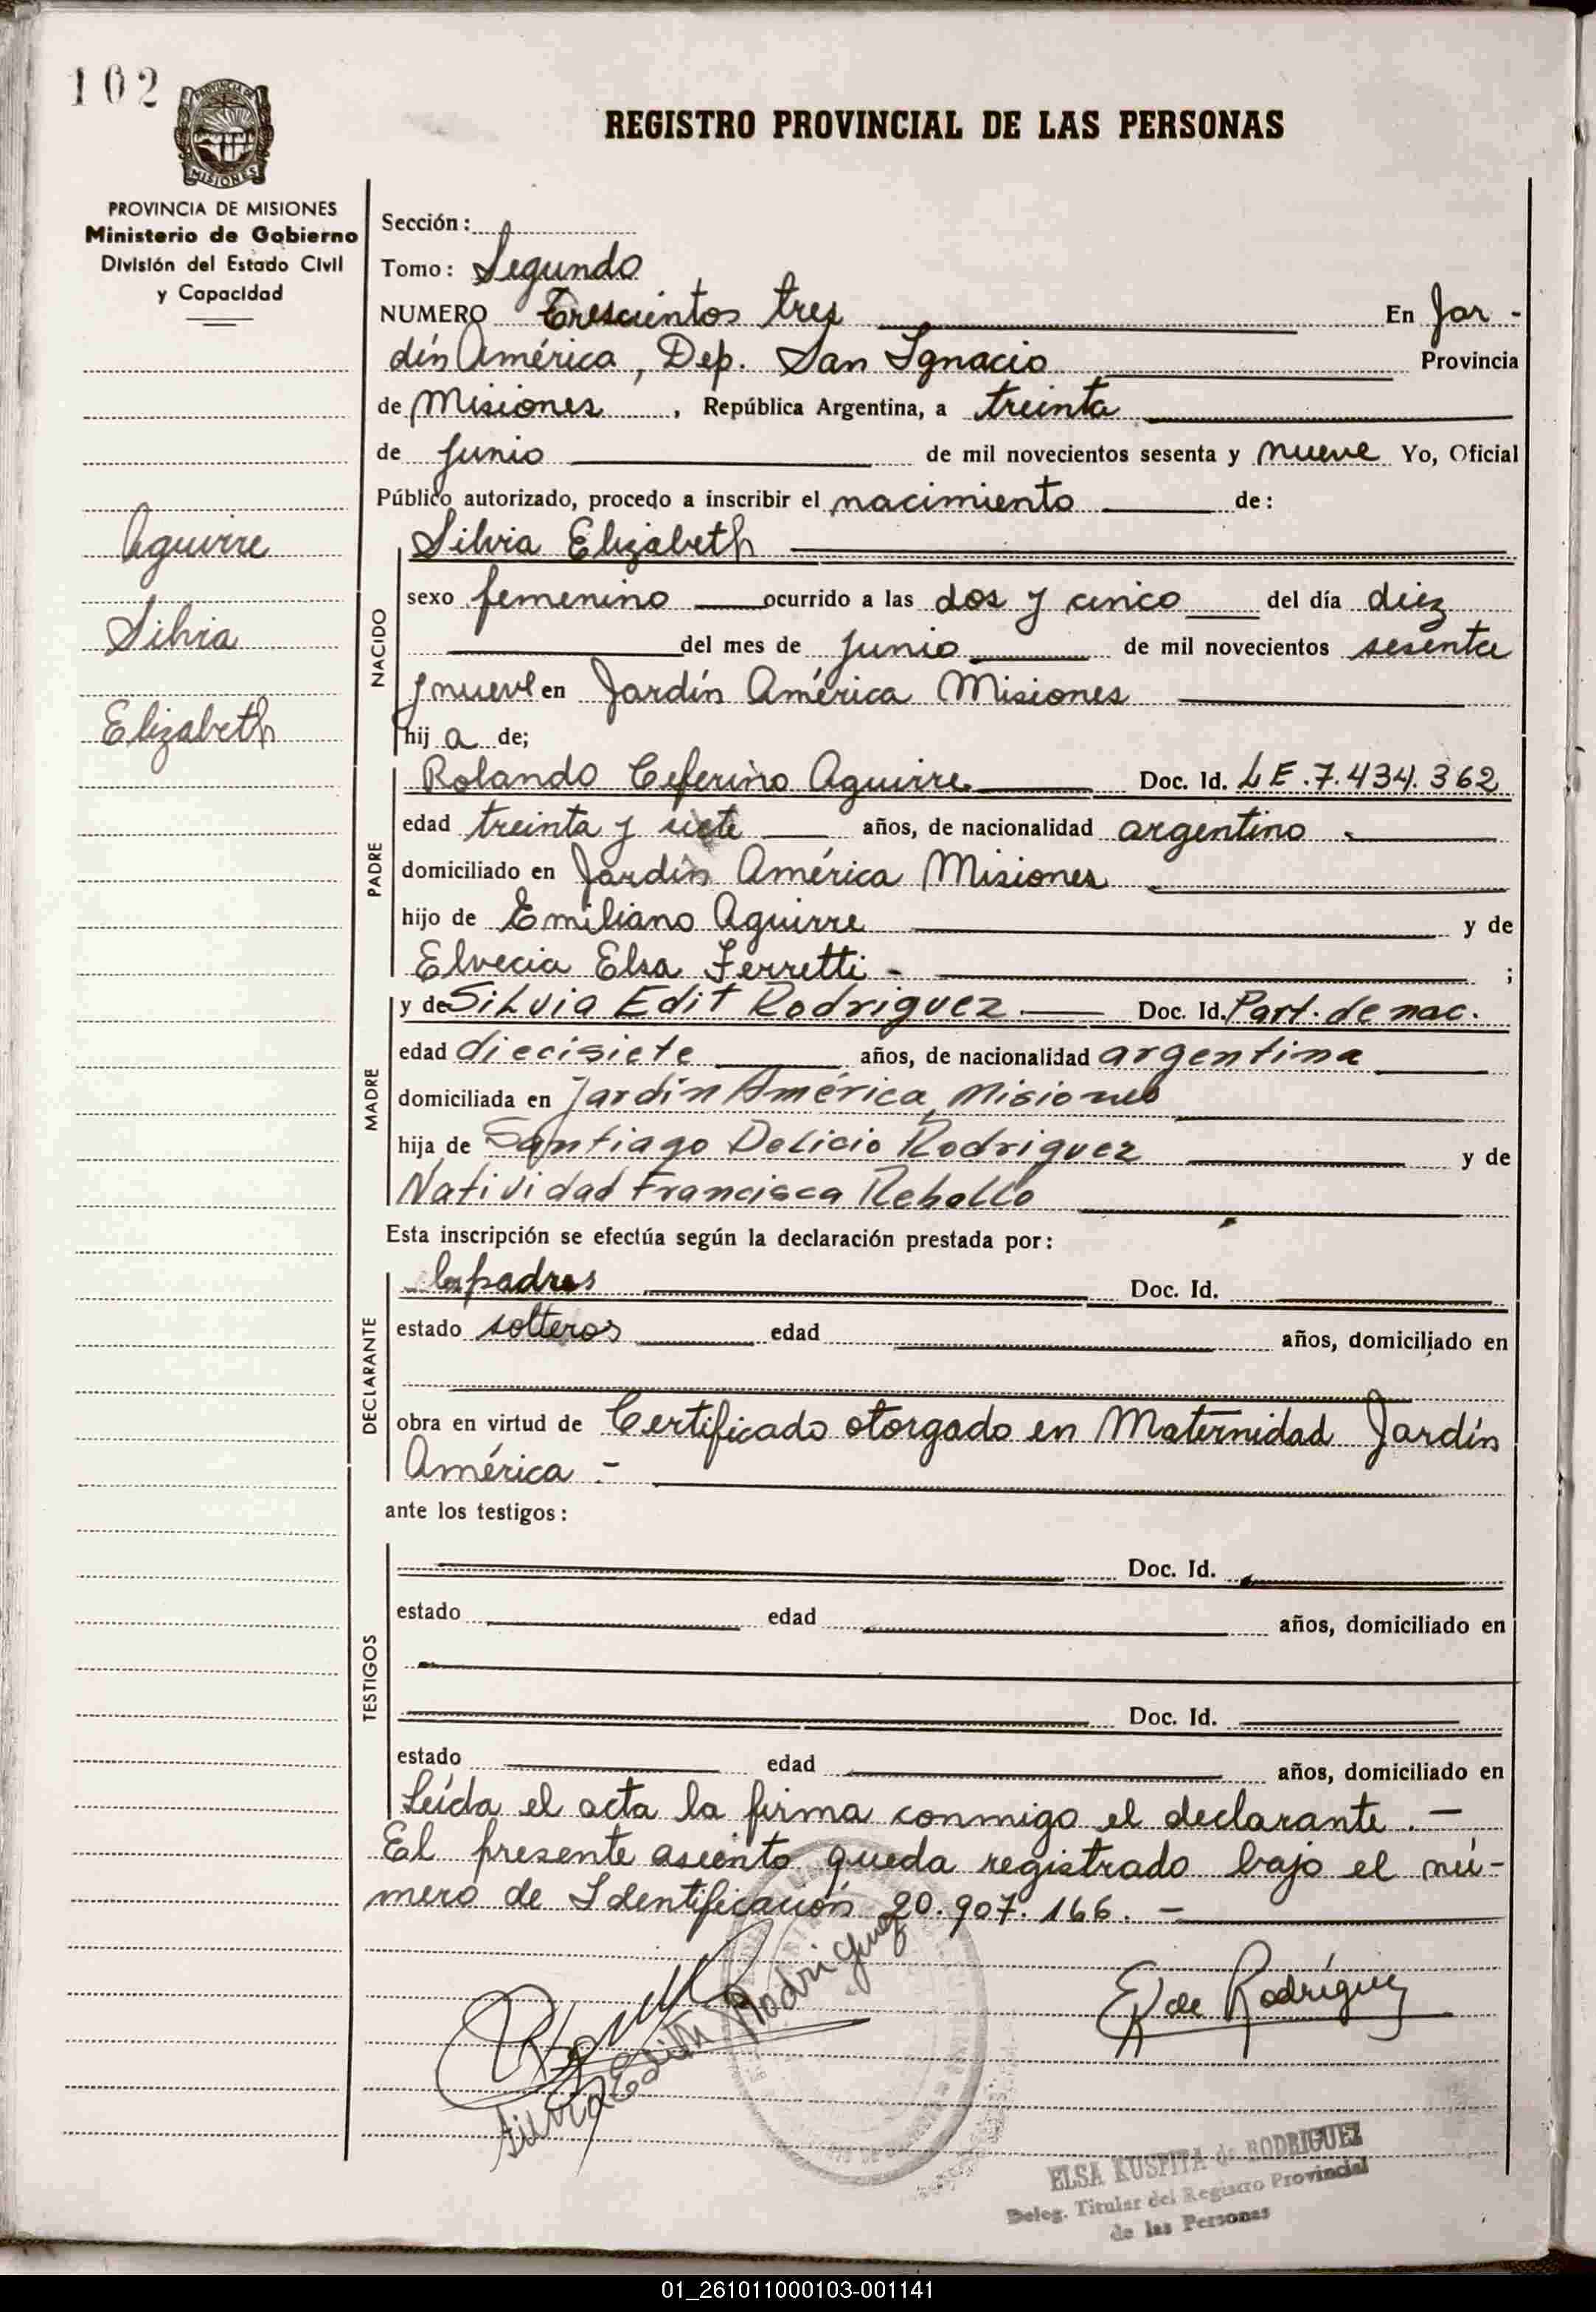 102
PROVINCIA DE
MISIONES
REGISTRO PROVINCIAL DE LAS PERSONAS
PROVINCIA DE MISIONES
Ministerio de Gobierno
División del Estado Civil
y Capacidad
Aguirre
Silvia
Elizabeth
Sección:
Tomo: Segundo
NUMERO Trescientos tres En Jar-
dín América, Dep. San Ignacio Provincia
de Misiones, República Argentina, a treinta
de junio de mil novecientos sesenta y nueve Yo, Oficial
Público autorizado, procedo a inscribir el nacimiento de:
NACIDO
Silvia Elizabeth
sexo femenino ocurrido a las dos y cinco del día diez
del mes de junio de mil novecientos sesenta
y nueve en Jardín América Misiones
hij a de;
PADRE
Rolando Ceferino Aguirre. Doc. Id. LE.7.434.362
edad treinta y siete años, de nacionalidad argentino
domiciliado en Jardín América Misiones
hijo de Emiliano Aguirre y de
Elvecia Elsa Ferretti - ;
MADRE
y de Silvia Edit Rodriguez Doc. Id. Part. de nac.
edad diecisiete años, de nacionalidad argentina
domiciliada en Jardín América, Misiones
hija de Santiago Delicio Rodriguez y de
Natividad Francisca Rebollo
Esta inscripción se efectúa según la declaración prestada por:
DECLARANTE
los padres Doc. Id.
estado solteros edad años, domiciliado en
obra en virtud de Certificado otorgado en Maternidad Jardín
América.-
ante los testigos:
TESTIGOS
Doc. Id.
estado edad años, domiciliado en
Doc. Id.
estado edad años, domiciliado en
Leída el acta la firma conmigo el declarante.-
El presente asiento queda registrado bajo el nú-
mero de Identificación 20.907.166.-
Silvia Edith Rodriguez
E K de Rodríguez
ELSA KUSPITA de RODRIGUEZ
Deleg. Titular del Registro Provincial
de las Personas
01_261011000103-001141